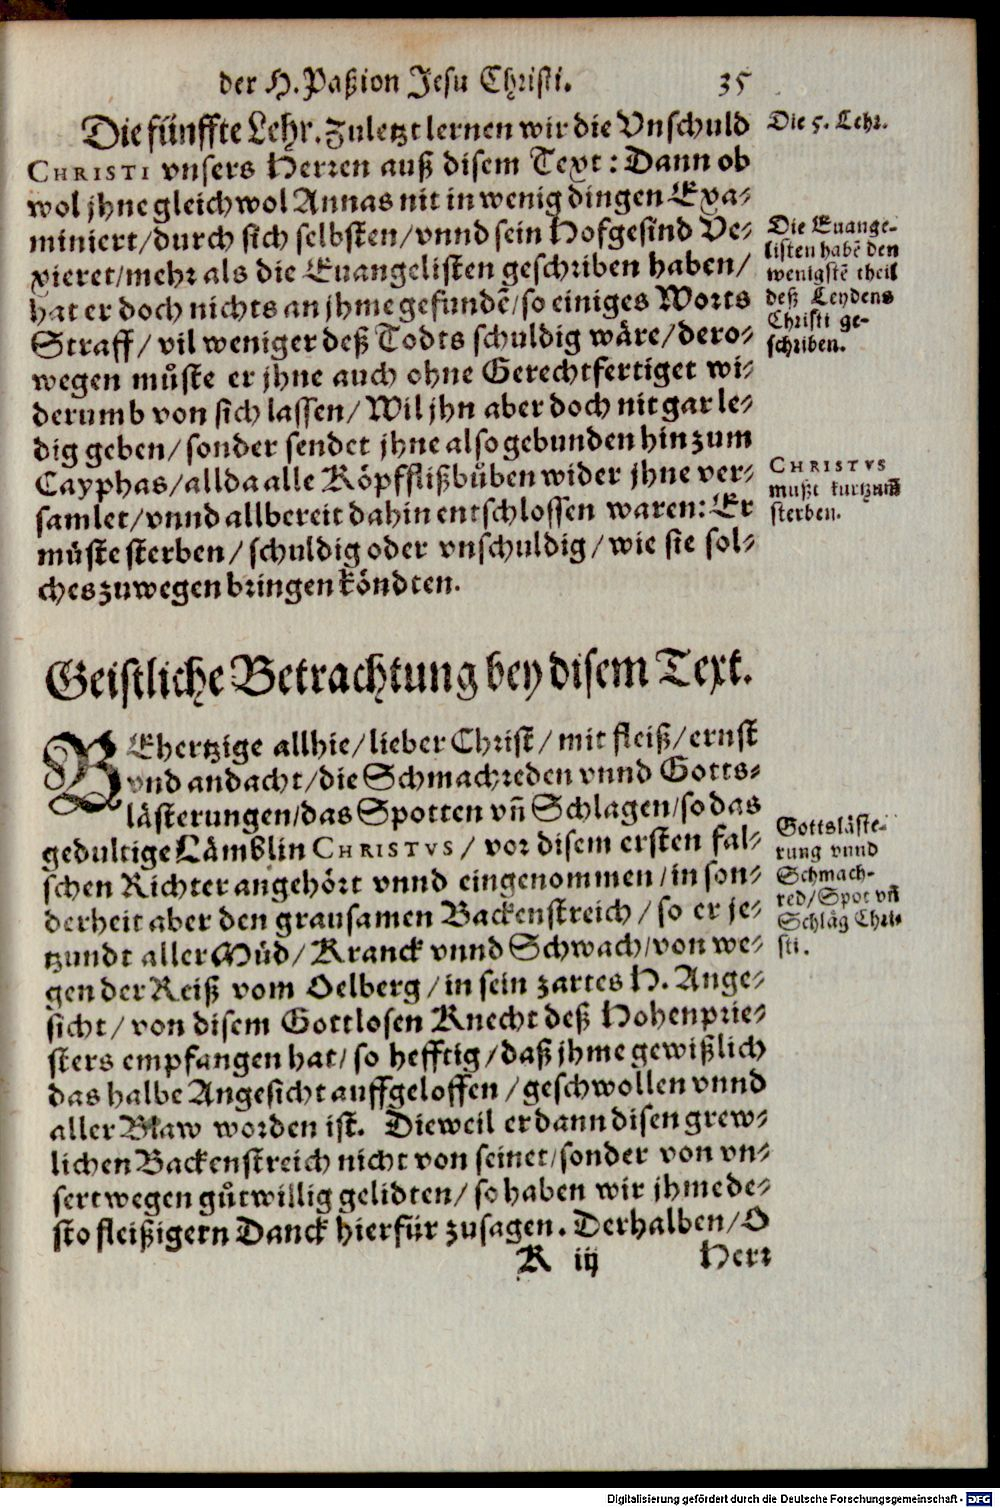 der H. Paßion Jesu Christi. 35
Die fünffte Lehr. Zuletzt lernen wir die Vnschuld
CHRISTI vnsers Herren auß disem Text: Dann ob
wol jhne gleichwol Annas nit in wenig dingen Exa-
miniert/ durch sich selbsten/ vnnd sein Hofgesind Ve-
xieret/ mehr als die Euangelisten geschriben haben/
hat er doch nichts an jhme gefundẽ/ so einiges Worts
Straff/ vil weniger deß Todts schuldig wäre/ dero-
wegen můste er jhne auch ohne Gerechtfertiget wi-
derumb von sich lassen/ Wil jhn aber doch nit gar le-
dig geben/ sonder sendet jhne also gebunden hin zum
Cayphas/ allda alle Köpfflißbůben wider jhne ver-
samlet/ vnnd allbereit dahin entschlossen waren: Er
müste sterben/ schuldig oder vnschuldig/ wie sie sol-
ches zuwegen bringen köndten.
Die 5. Lehr.
Die Euange-
listen habẽ den
wenigstẽ theil
deß Leydens
Christi ge-
schriben.
CHRISTVS
mußt kurtzumb
sterben.
Geistliche Betrachtung bey disem Text.
BEhertzige allhie/ lieber Christ/ mit fleiß/ ernst
vnd andacht/ die Schmachreden vnnd Gotts-
lästerungen/ das Spotten vñ Schlagen/ so das
gedultige Lämblin CHRISTVS/ vor disem ersten fal-
schen Richter angehört vnnd eingenommen/ in son-
derheit aber den grausamen Backenstreich/ so er je-
tzundt aller Müd/ Kranck vnnd Schwach/ von we-
gen der Reiß vom Oelberg/ in sein zartes H. Ange-
sicht/ von disem Gottlosen Knecht deß Hohenprie-
sters empfangen hat/ so hefftig/ daß jhme gewißlich
das halbe Angesicht auffgeloffen/ geschwollen vnnd
aller Blaw worden ist. Dieweil er dann disen grew-
lichen Backenstreich nicht von seinet/ sonder von vn-
sert wegen gůtwillig gelidten/ so haben wir jhme de-
sto fleißigern Danck hierfür zusagen. Derhalben/ O
Gottsläste-
rung vnnd
Schmach-
red/ Spot vñ
Schläg Chri-
sti.
K iij Herr
Digitalisierung gefördert durch die Deutsche Forschungsgemeinschaft - DFG